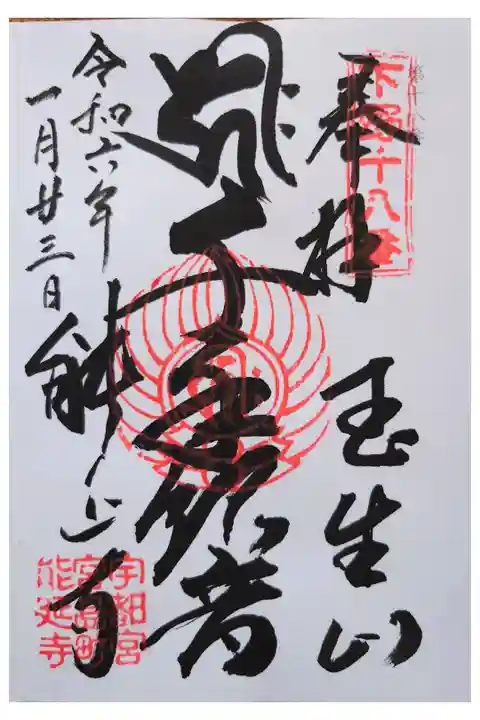 奉拝
玉生山
千手観音
令和六年
一月廿三日
能延寺
宇都宮
宮島町
能延寺